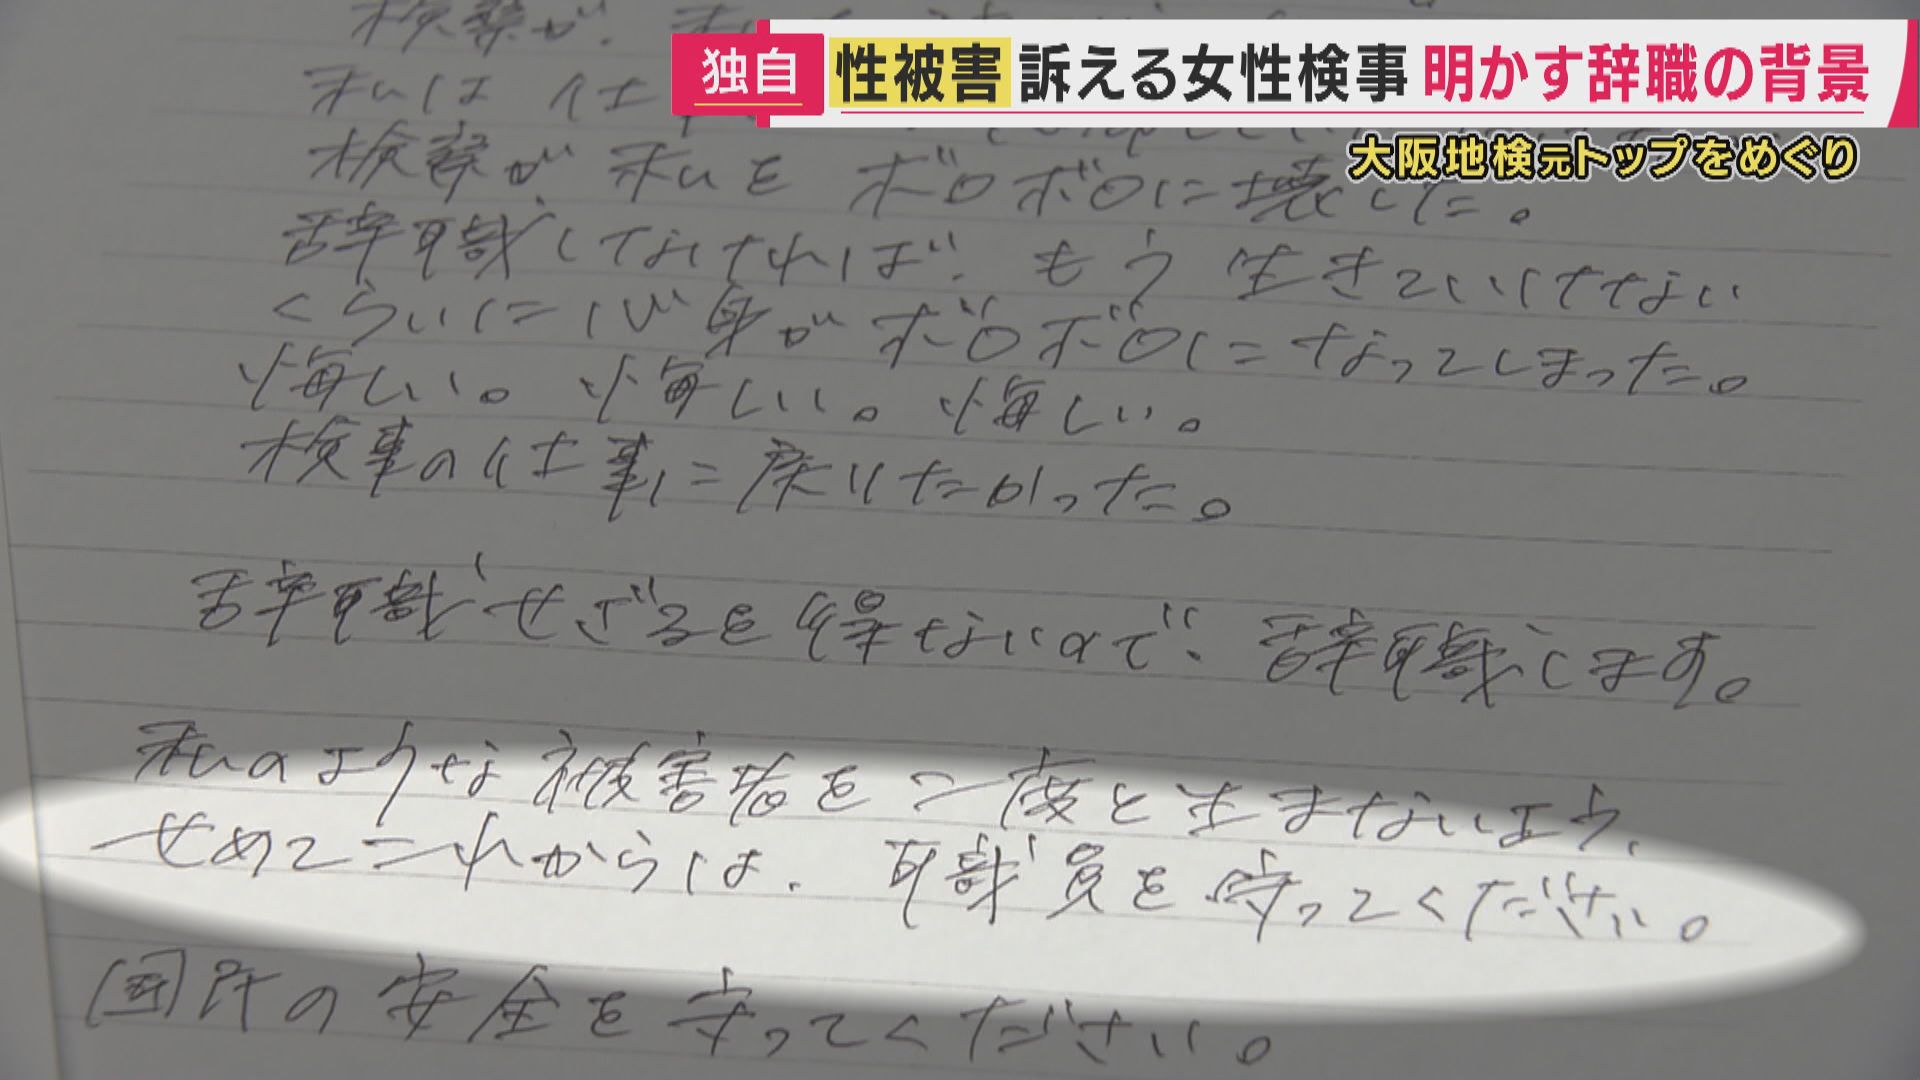 独自 性被害 訴える女性検事 明かす辞職の背景
大阪地検元トップをめぐり
検察が、私
私は 仕
検察が 私を ボロボロに壊した。
辞職しなければ、もう 生きていけない
くらいに心身が ボロボロになってしまった。
悔しい。悔しい。悔しい。
検事の仕事に戻りたかった。
辞職せざるを得ないので、辞職します。
私のような被害者を二度と生まないよう、
せめてこれからは、職員を守ってください。
国民の安全を守ってください。